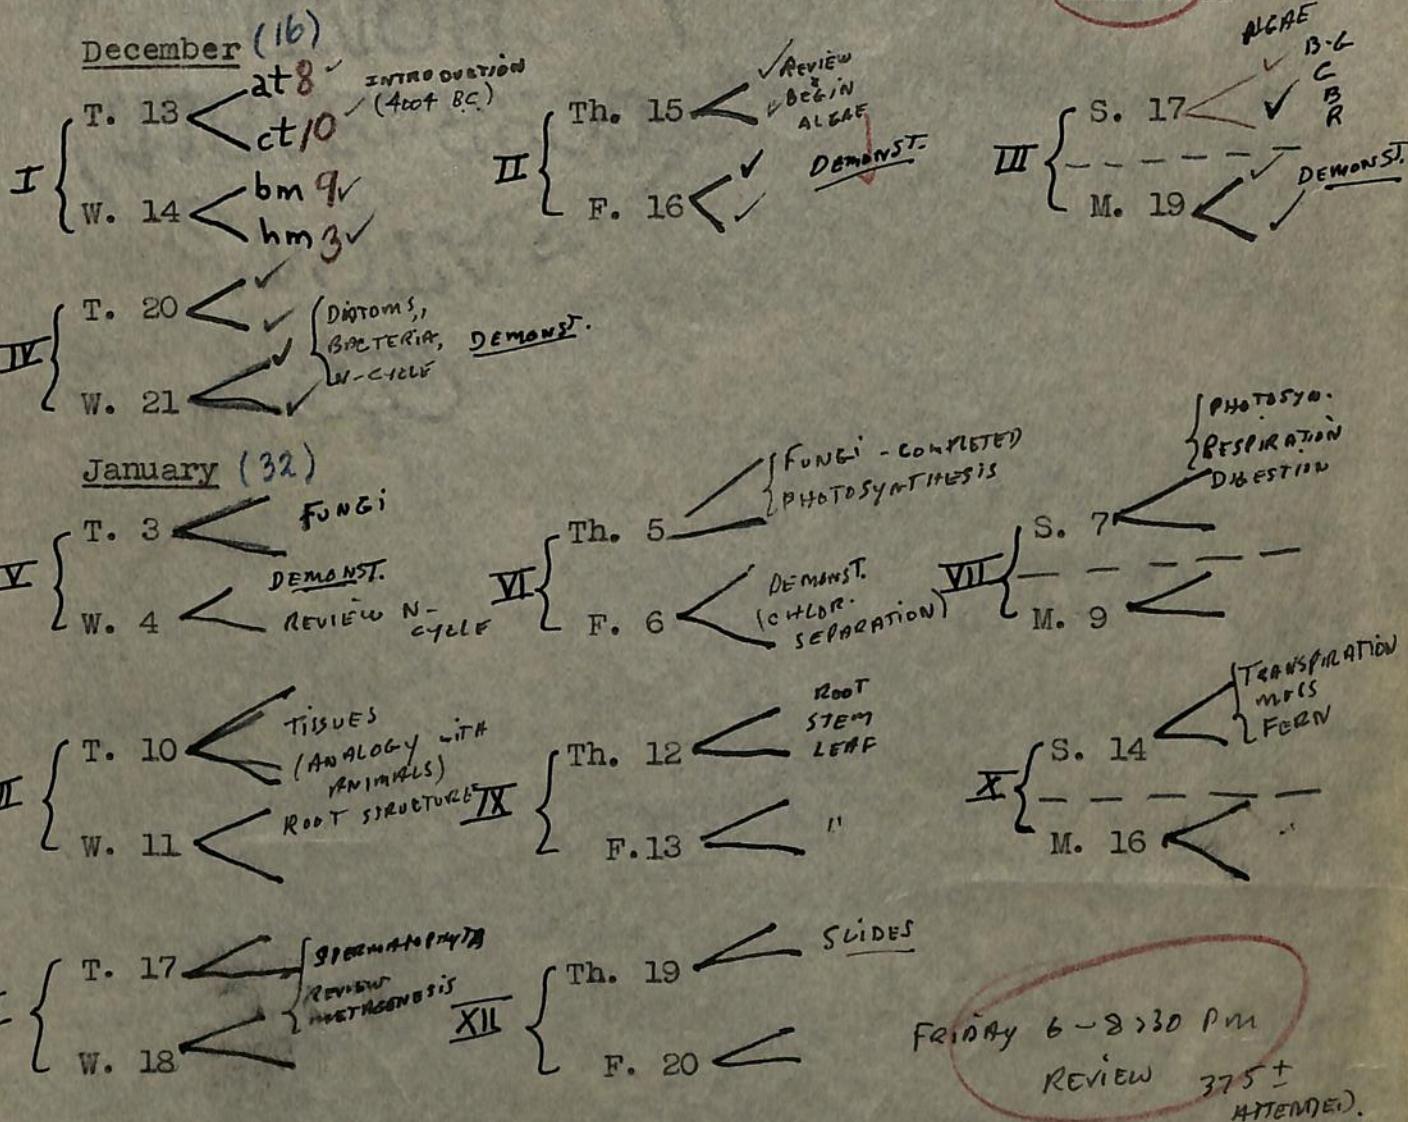 December (16)
I
T. 13
at 8 ✓
ct 10 ✓
INTRODUCTION
(4004 BC)
W. 14
bm 9 ✓
hm 3 ✓
II
Th. 15
✓ REVIEW
& BEGIN
✓ ALGAE
F. 16 ✓ ✓
DEMONST.
III
S. 17 ✓ ✓
ALGAE
B-G
C
B
R
M. 19 ✓ ✓
DEMONST.
IV
T. 20 ✓ ✓
W. 21 ✓ ✓
DIATOMS,
BACTERIA,
N-CYCLE
DEMONST.
January (32)
V
T. 3
FUNGI
W. 4
DEMONST.
REVIEW N-
CYCLE
VI
Th. 5
FUNGI - COMPLETED
PHOTOSYNTHESIS
F. 6
DEMONST.
(CHLOR.
SEPARATION)
VII
S. 7
PHOTOSYN.
RESPIRATION
DIGESTION
M. 9
II
T. 10
TISSUES
(ANALOGY WITH
ANIMALS)
W. 11
ROOT STRUCTURE
IX
Th. 12
ROOT
STEM
LEAF
F.13
"
X
S. 14
TRANSPIRATION
MOSS
FERN
M. 16
"
T. 17
W. 18
SPERMATOPHYTA
REVIEW
METAGENESIS
XII
Th. 19
SLIDES
F. 20
FRIDAY 6-8:30 PM
REVIEW
375 ±
ATTENDED.